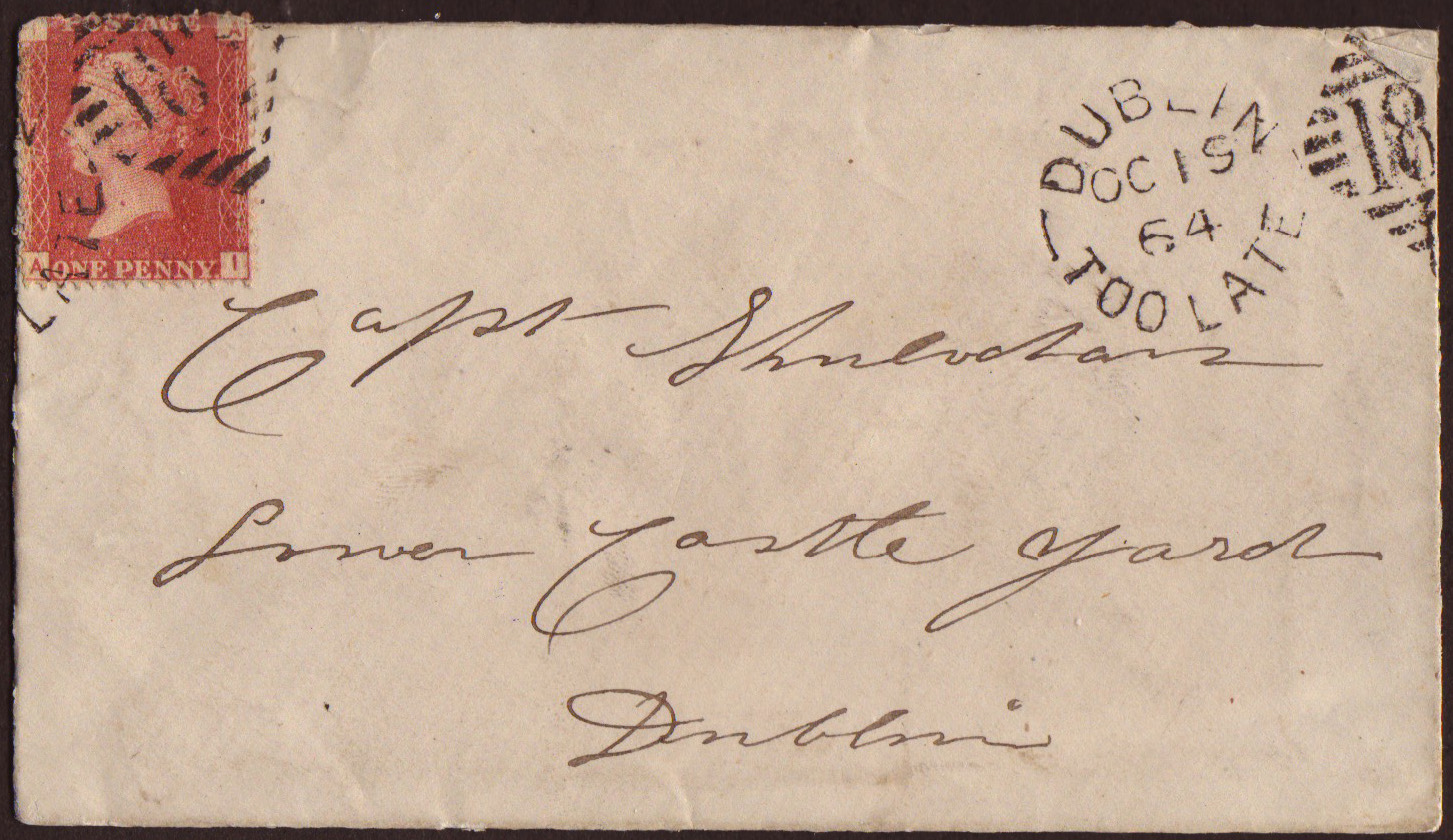 POSTAGE
18
A ONE PENNY I
DUBLIN
OC 19
64
TOO LATE
18
Capt
Lower Castle Yard
Dublin